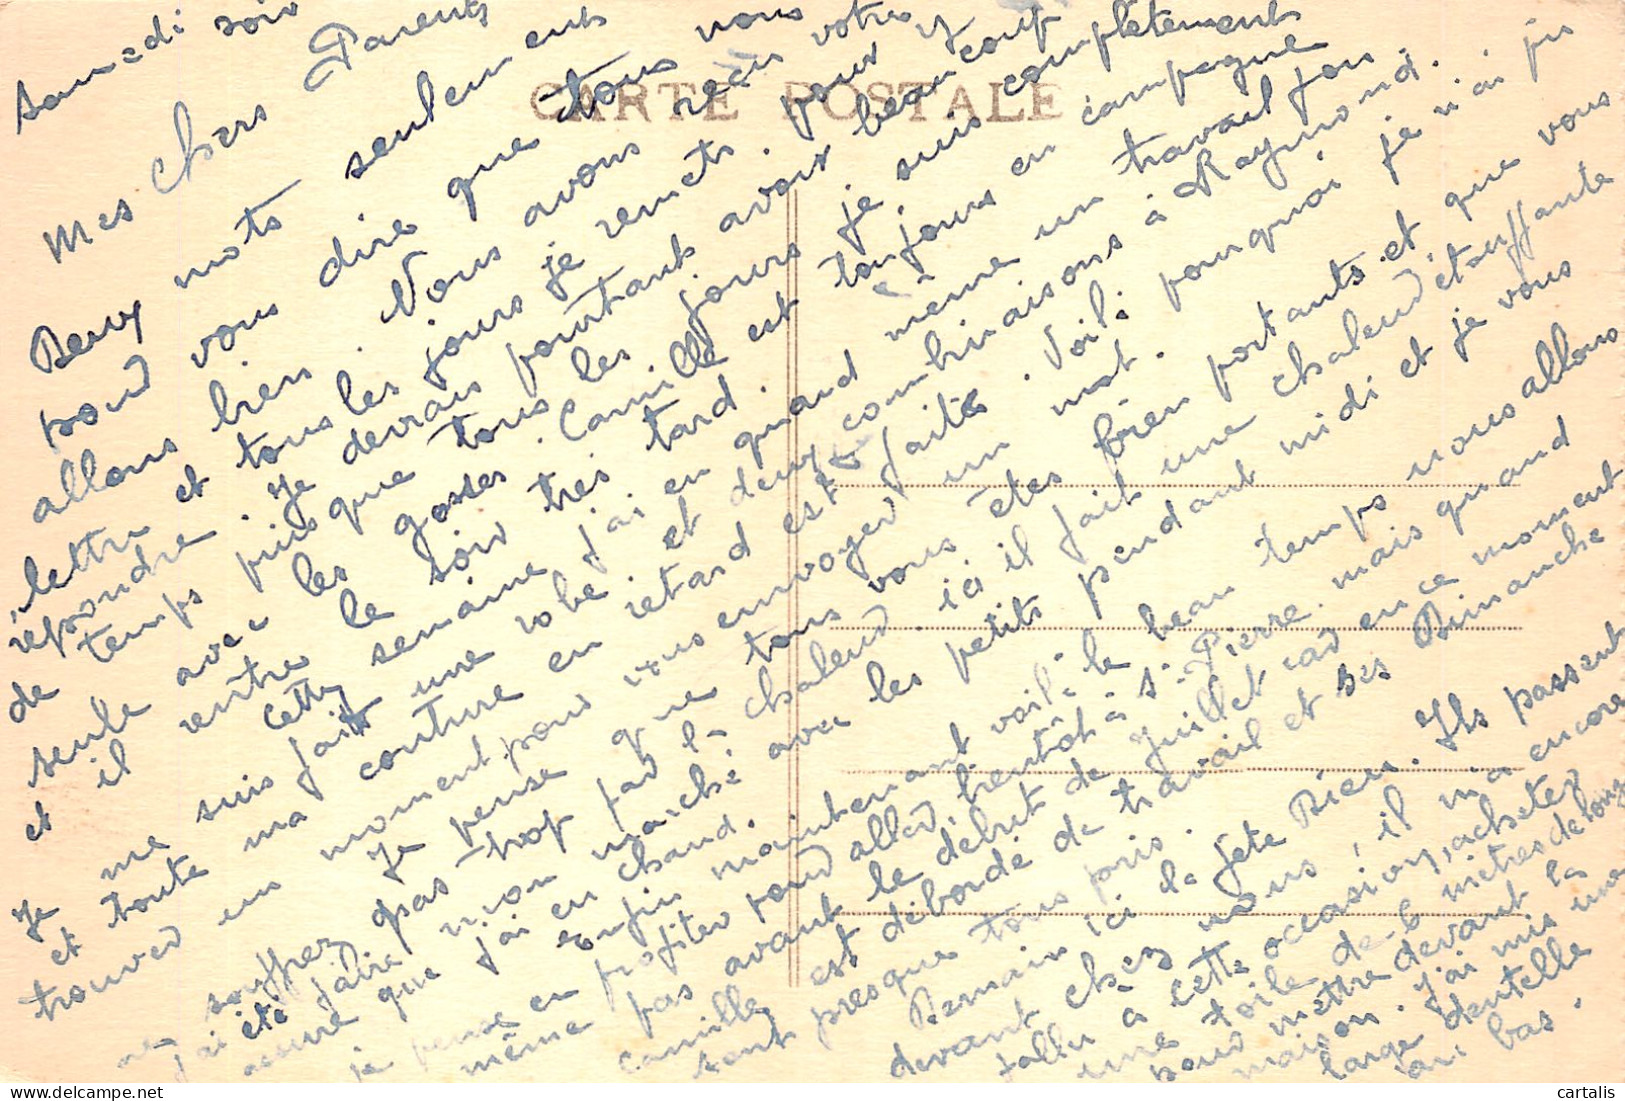 Samedi soir
Mes Chers Parents
Deux mots seulement
pour vous dire que tous nous
allons bien. Nous avons reçu votre
lettre et tous les jours je remets pour y
répondre. Je devrais pourtant avoir beaucoup
de temps puisque tous les jours je suis complètement
seule avec les gosses. Camille est toujours en campagne
et il rentre le soir très tard.
Cette semaine j'ai en quand même un travail fou
je me suis fait une robe et deux combinaisons à Raymond.
et toute ma couture en retard est faite. Voilà pourquoi je n'ai pu
trouver un moment pour vous envoyer un mot.
Je pense que tous vous êtes bien portants et que vous
ne souffrez pas trop par la chaleur. ici il fait une chaleur étouffante
j'ai été faire mon marché avec les petits pendant midi et je vous
assure que j'ai eu chaud.
Enfin maintenant voilà le beau temps nous allons
je pense en profiter pour aller bientôt à St Pierre. mais quand
même pas avant le début de Juillet car en ce moment
Camille est débordé de travail et ses Dimanche
sont presque tous pris.
Demain ici la fête Dieu. Ils passent
devant chez nous, il m'a encore
fallu à cette occasion, acheter
une toile de 6 mètres de long
pour mettre devant la
maison. j'ai mis une
large dentelle
au bas.
CARTE POSTALE
cartalis
delcampe.net